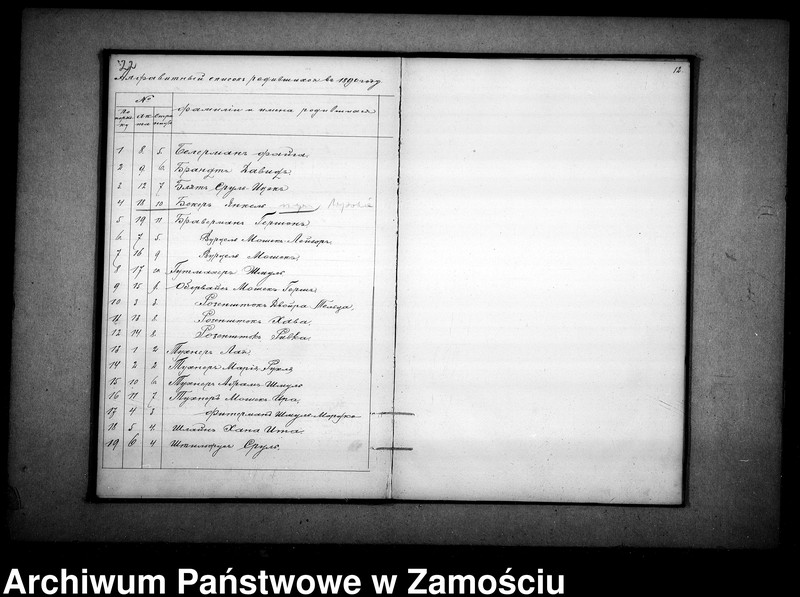 12
Алфавитный список родившихся в 1890 году
№
По поряд ку
Ак та
Фамилии и имена родившихся
1 8 5. Белерман Файга
2 9 6. Брандт Давид
3 12 7 Блат Срул Ицек
4 18 10 Бокер Янкель
5 19 11 Браверман Гершон
6 7 5. Вурцель Мошек Лейзор
7 16 9 Вурцель Мошек
8 17 10 Гутмахер Шмуль
9 15 8. Обервайс Мошек Герш
10 3 3. Розеншток Двойра
11 13 8. Розеншток Хава
12 14 8. Розеншток Ривка
13 1 2 Тухнер Лая
14 2 2 Тухнер Мария Рухля
15 10 6. Тухнер Абрам Шмуль
16 11 7. Тухнер Мошек Ира
17 4 3 Фитерман Шмуль Мордко
18 5 4. Шлайн Хана Ита
19 6 4 Срул
Archiwum Państwowe w Zamościu